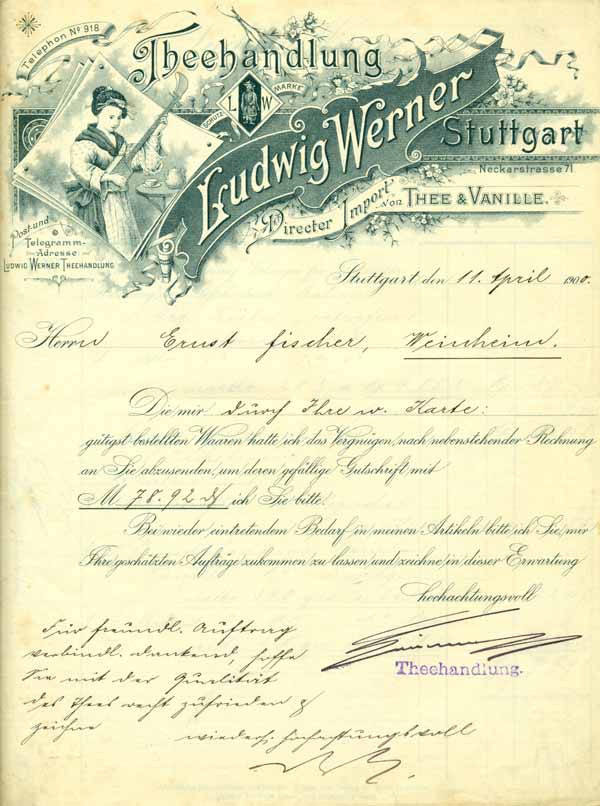 Telephon No 918
Theehandlung
SCHUTZ MARKE
L W
Ludwig Werner
Stuttgart
Neckarstrasse 71
Directer Import von THEE & VANILLE.
Post-und
Telegramm-
Adresse
LUDWIG WERNER THEEHANDLUNG
Stuttgart den 11. April 1900.
Herrn Ernst Fischer, Weinheim.
Die mir durch Ihre w. Karte:
gütigst bestellten Waaren hatte ich das Vergnügen, nach nebenstehender Rechnung
an Sie abzusenden, um deren gefällige Gutschrift mit
M 78.92 ₰ ich Sie bitte.
Bei wieder eintretendem Bedarf in meinen Artikeln bitte ich Sie, mir
Ihre geschätzten Aufträge zukommen zu lassen und zeichne in dieser Erwartung
hochachtungsvoll
Theehandlung.
Für freundl. Auftrag
verbindl. dankend, hoffe
Sie mit der Qualität
des Thees recht zufrieden &
zeichne wiederh. hochachtungsvoll